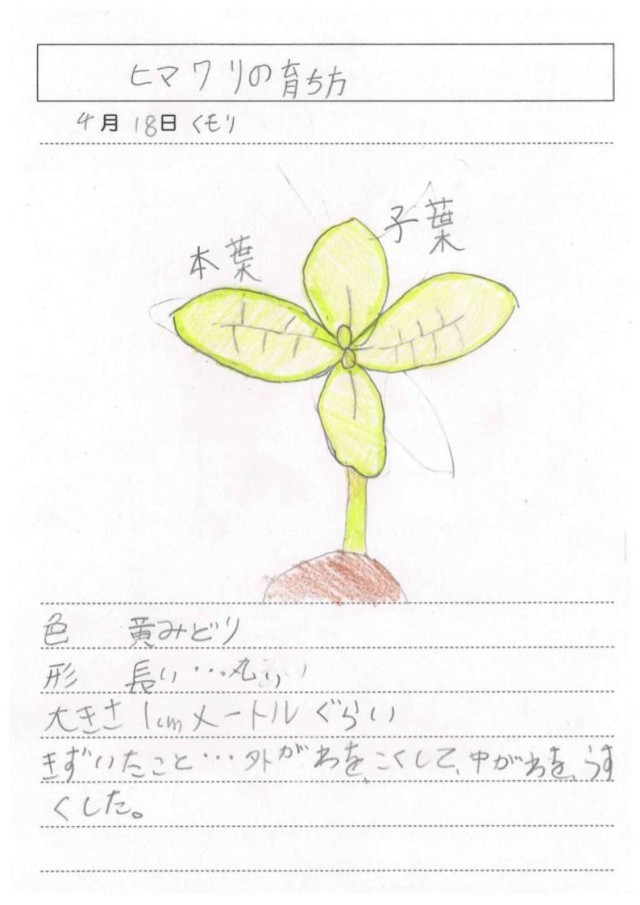 ヒマワリの育ち方
4月18日 くもり
子葉
本葉
色 黄みどり
形 長い…丸い
大きさ 1cmメートルぐらい
きずいたこと…外がわを、こくして、中がわを、うす
くした。